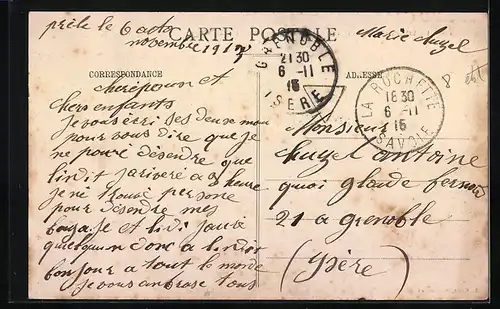 prèle le 6 acto
novembre 1915
CARTE POSTALE
Marie chuzel
CORRESPONDANCE
ADRESSE
GRENOBLE
21 30
6 -11
15
ISERE
LA ROCHETTE
18 30
6 -11
15
SAVOIE
cher époux et
chers enfants
je vous écri ses deux mon
pour vous dire que je
ne pouré désendre que
lindit jariveré a 9 heure
je né trouvé persone
pour désendre mes
bagaje et lidi jauré
quelquun donc a lindit
bonjour a tout le monde
je vous anbrase tous
Monsieur
chuzel antoine
quoi glaude bernar
21 a grenoble
(ysère)